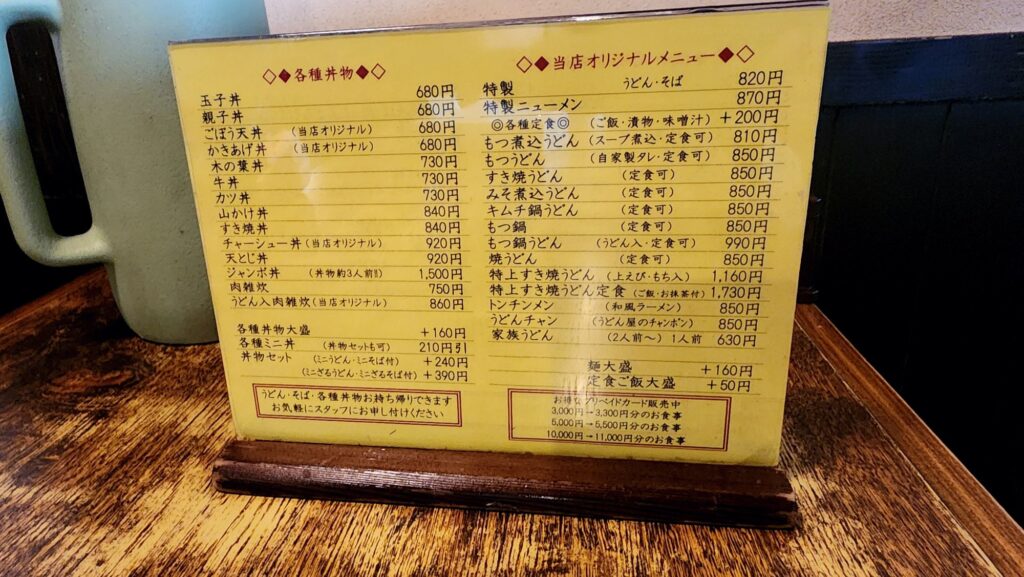 ◇◆各種丼物◆◇
玉子丼 680円
親子丼 680円
ごぼう天丼 (当店オリジナル) 680円
かきあげ丼 (当店オリジナル) 680円
木の葉丼 730円
牛丼 730円
カツ丼 730円
山かけ丼 840円
すき焼丼 840円
チャーシュー丼(当店オリジナル) 920円
天とじ丼 920円
ジャンボ丼 (丼物約3人前!!) 1,500円
肉雑炊 750円
うどん入肉雑炊(当店オリジナル) 860円
各種丼物大盛 +160円
各種ミニ丼 (丼物セットも可) 210円引
丼物セット (ミニうどん・ミニそば付) +240円
(ミニざるうどん・ミニざるそば付) +390円
うどん・そば・各種丼物お持ち帰りできます
お気軽にスタッフにお申し付けください
◇◆当店オリジナルメニュー◆◇
特製 うどん・そば 820円
特製ニューメン 870円
◎各種定食◎ (ご飯・漬物・味噌汁) +200円
もつ煮込うどん (スープ煮込・定食可) 810円
もつうどん (自家製タレ・定食可) 850円
すき焼うどん (定食可) 850円
みそ煮込うどん (定食可) 850円
キムチ鍋うどん (定食可) 850円
もつ鍋 (定食可) 850円
もつ鍋うどん (うどん入・定食可) 990円
焼うどん (定食可) 850円
特上すき焼うどん (上えび・もち入) 1,160円
特上すき焼うどん定食 (ご飯・お抹茶付) 1,730円
トンチンメン (和風ラーメン) 850円
うどんチャン (うどん屋のチャンポン) 850円
家族うどん (2人前～) 1人前 630円
麺大盛 +160円
定食ご飯大盛 +50円
お得なプリペイドカード販売中
3,000円→3,300円分のお食事
5,000円→5,500円分のお食事
10,000円→11,000円分のお食事